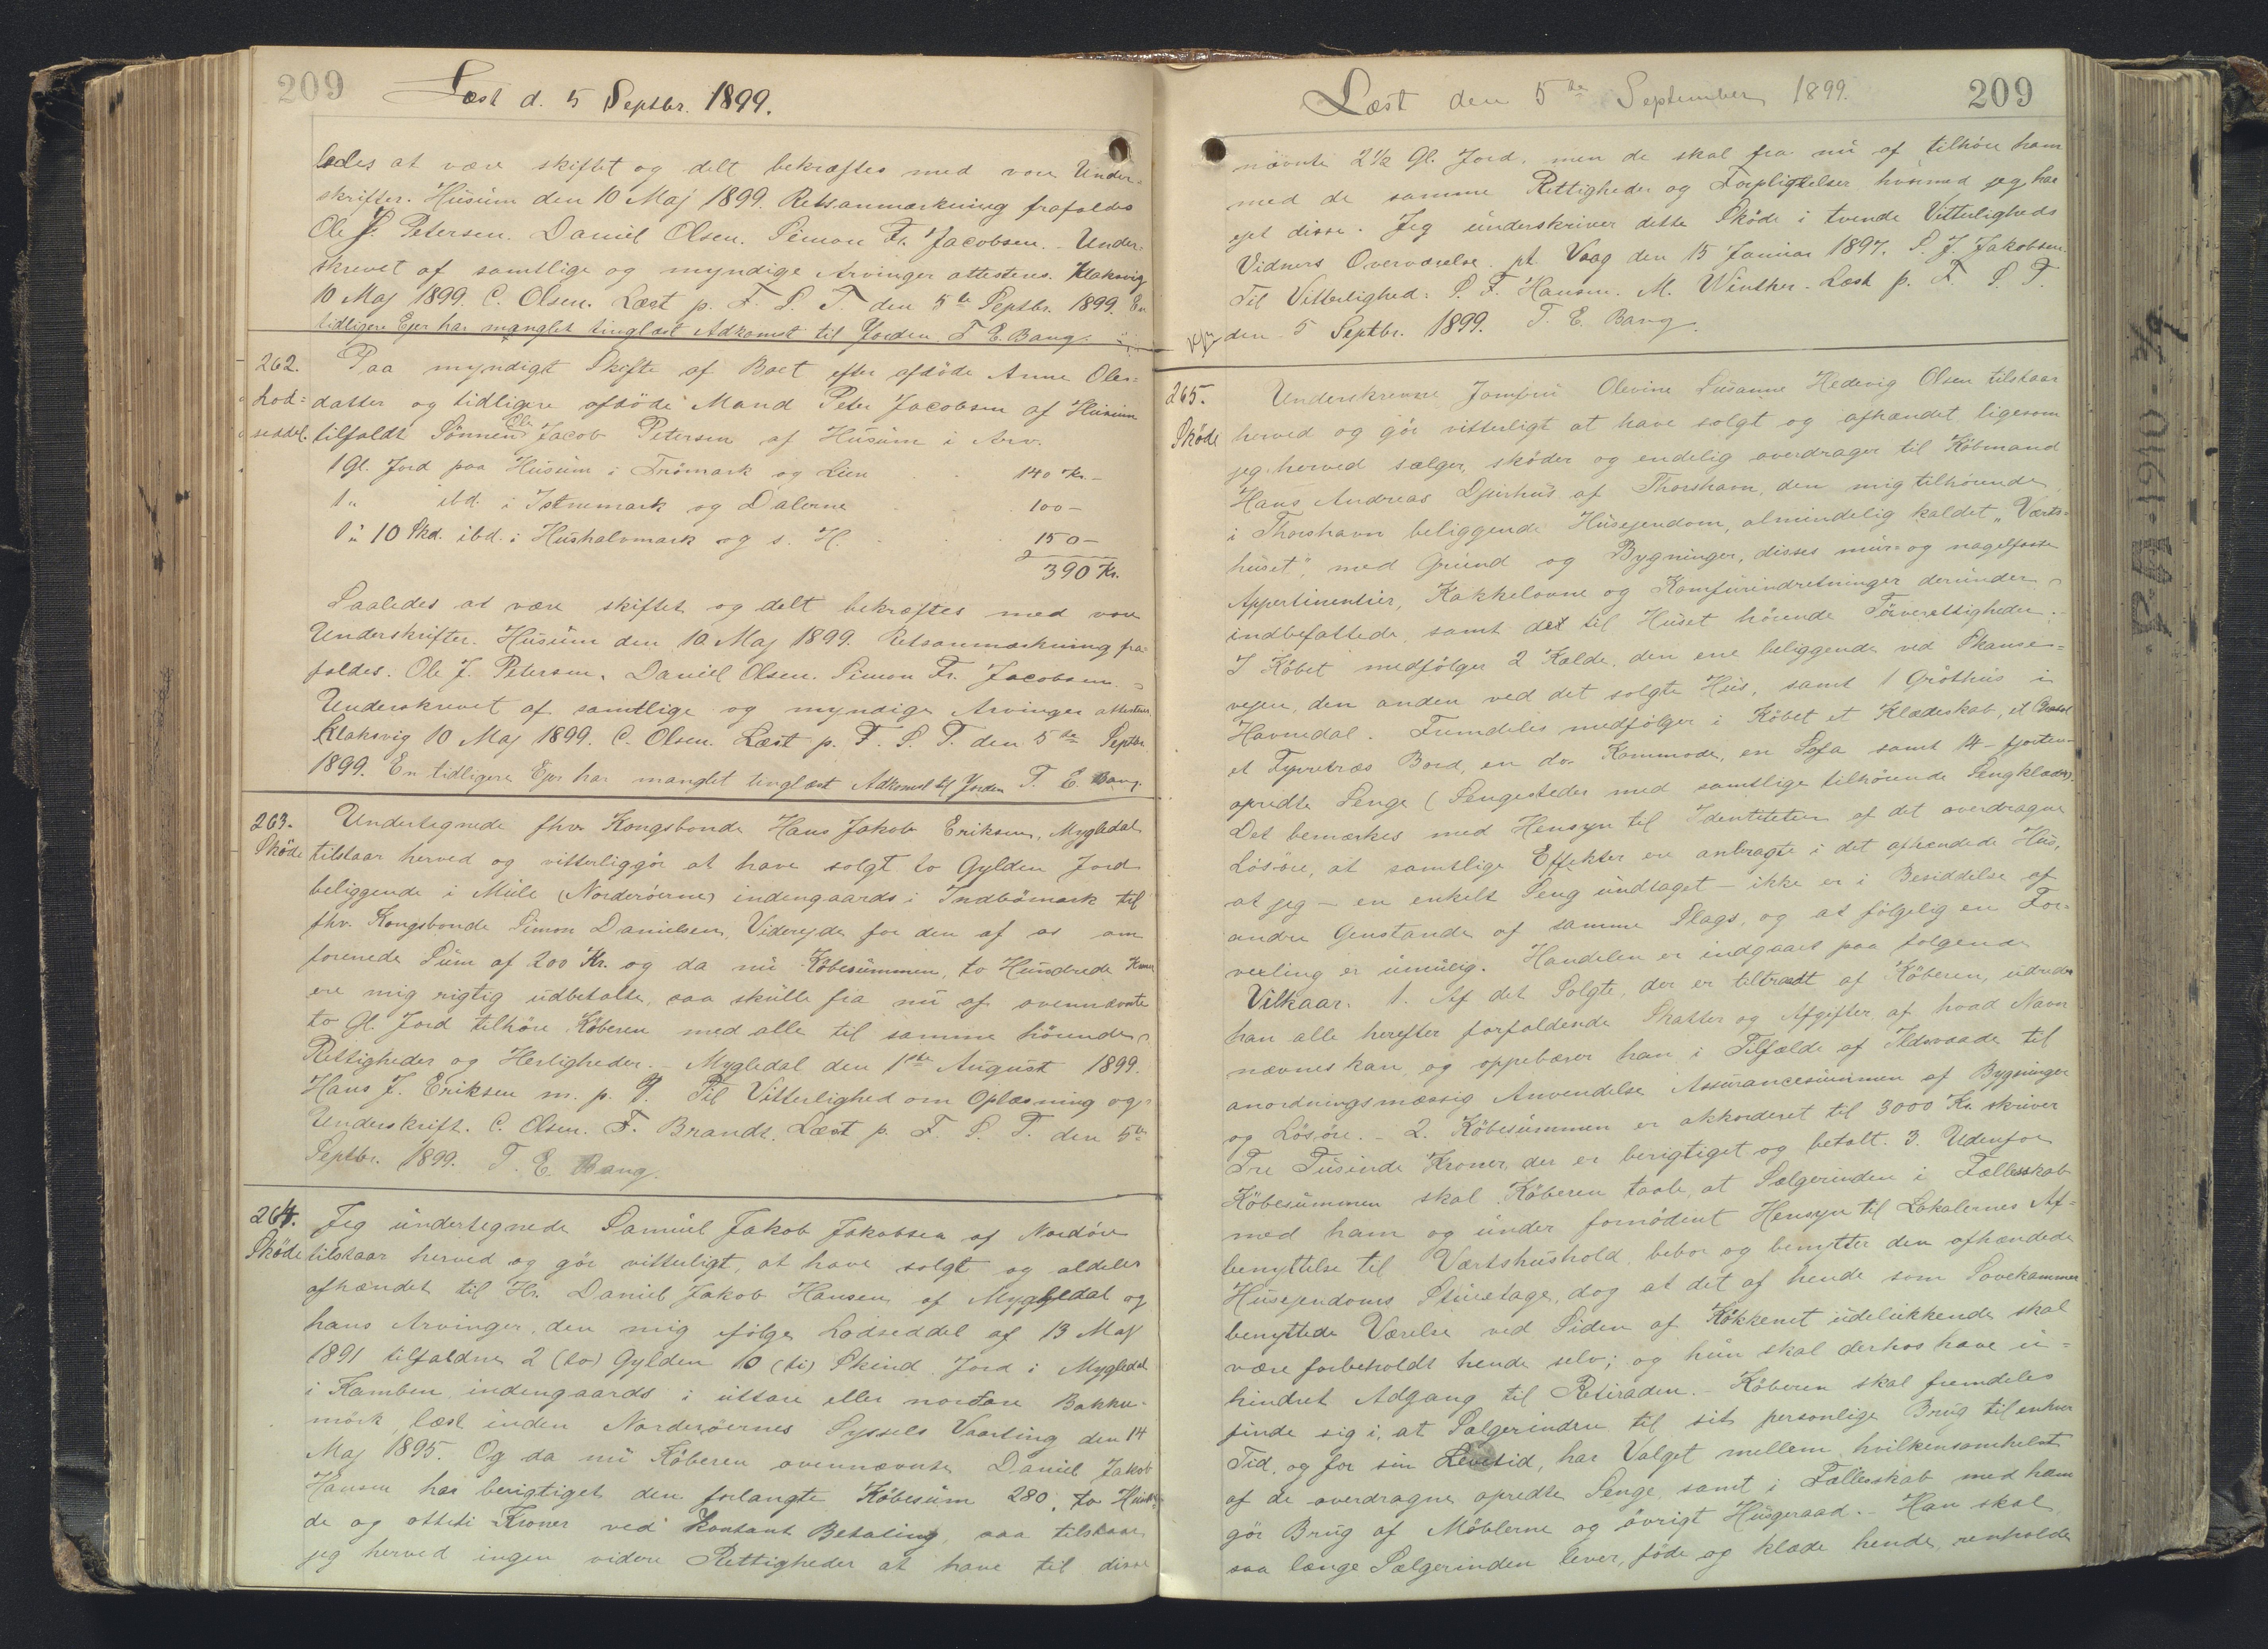 209
Læst d. 5 Septbr. 1899.
ledes at være skiftet og delt bekræftes med vore Under=
skrifter. Húsúm den 10 Maj 1899. Retsanmærkning frafaldes
Ole J. Petersen. Daniel Olsen. Simon Fr. Jacobsen. - Under-
skrevet af samtlige og myndige Arvinger attesteres. Klaksvig
10 Maj 1899. C. Olsen. Læst p. F. S. T. den 5te Septbr. 1899. En
tidligere Ejer har manglet tinglæst Adkomst til Jorden T. E. Bang.
262. Paa myndigt Skifte af Boet efter afdöde Anne Oles=
Lod= datter og tidligere afdöde Mand Peter Jacobsen af Húsúm
seddel. tilfaldt Sönnen Ole Jacob Petersen af Húsúm i Arv.
1 Gl. Jord paa Húsúm i Trömark og Lien 140 Kr. -
1 " ibd. i Istemmark og Dalerne 100 -
1 " 10 Skd. ibd. i Hushalvmark og s. H. 150 -
390 Kr.
Saaledes at være skiftet og delt bekræftes med vore
Underskrifter. Húsúm den 10 Maj 1899. Retsanmærkning fra=
faldes. Ole J. Petersen. Daniel Olsen. Simon Fr. Jacobsen. -
Underskrevet af samtlige og myndige Arvinger attesteres
Klaksvig 10 Maj 1899. C. Olsen. Læst p. F. S. T. den 5te Septbr
1899. En tidligere Ejer har manglet tinglæst Adkomst til Jorden T. E. Bang.
263. Undertegnede fhv. Kongsbonde Hans Jakob Eriksen, Mygledal
Sköde tilstaar herved og vitterliggör at have solgt to Gylden Jord
beliggende i Múle (Norderöerne) indengaards i Indbömark til
fhv. Kongsbonde Simon Danielsen, Viderejde for den af os om
forenede Súm af 200 Kr. og da nú Köbesúmmen, to Hundrede Kroner
ere mig rigtig údbetalte, saa skulle fra nú af ovennævnte
to Gl. Jord tilhöre Köberen med alle til samme hörende
Rettigheder og Herligheder. - Mygledal den 1ste Aúgúst 1899.
Hans J. Eriksen m. p. P. Til Vitterlighed om Oplæsning og
Underskrift. C. Olsen. F. Brandt. Læst p. F. S. T. den 5te
Septbr. 1899. T. E. Bang.
264. Jeg úndertegnede Samúel Jakob Jakobsen af Nordöre
Sköde tilstaar herved og gör vitterligt, at have solgt og aldeles
afhændet til Hr. Daniel Jakob Hansen af Mygledal og
hans Arvinger, den mig ifölge Lodseddel af 13 Maj
1891 tilfaldne 2 (to) Gylden 10 (ti) Skind Jord i Mygledal
i Kamben indengaards i úttare eller nordare Bakku-
mörk læst inden Norderöernes Syssels Vaarting den 14
Maj 1895. Og da nú Köberen ovennævnte Daniel Jakob
Hansen har berigtiget den forlangte Köbesúm 280, to Húndre-
de og otteti Kroner ved Kontant Betaling, saa tilstaar
jeg herved ingen videre Rettigheder at have til disse
Læst den 5te September 1899.
209
nævnte 2½ Gl. Jord, men de skal fra nú af tilhöre ham
med de samme Rettigheder og Forpligtelser hvormed jeg har
ejet disse. Jeg únderskriver dette Sköde i tvende Vitterligheds
Vidners Overværelse. pt. Vaag den 15 Januar 1897. S. J. Jakobsen.
Til Vitterlighed: S. F. Hansen. M. Winther. Læst p. F. S. T.
den 5 Septbr. 1899. T. E. Bang.
265. Underskrevne Jomfrú Olevine Susanne Hedevig Olsen tilstaar
Sköde herved og gör vitterligt at have solgt og afhændet ligesom
jeg herved sælger, sköder og endelig overdrager til Köbmand
Hans Andreas Djurhús af Thorshavn, den mig tilhörende
i Thorshavn beliggende Húsejendom, almindelig kaldet "Værts=
húset", med Grúnd og Bygninger, disses múr= og nagelfaste
Appertinentier, Kakkelovne og Komfúrindretninger derúnder
indbefattede, samt det til Húset hörende Törverettigheder. -
I Köbet medfölger 2 Kælde, den ene beliggende ved Skanse=
vejen, den anden ved det solgte Hús, samt 1 Gróthús i
Havnedal. Fremdeles medfölger i Köbet et Klædeskab, et
et Fyrretræs Bord, en do. Kommode, en Sofa samt 14 - fjorten -
opredte Senge (Sengesteder med samtlige tilhörende Sengklæder).
Det bemærkes med Hensyn til Identiteten af det overdragne
Lösöre, at samtlige Effekter ere anbragte i det afhændede Hús,
at jeg - en enkelt Seng úndtaget - ikke er i Besiddelse af
andre Genstande af samme Slags, og at fölgelig en For=
vexling er úmúlig. Handelen er indgaaet paa fölgende
Vilkaar. 1. Af det Solgte, der er tiltraadt af Köberen, udreder
han alle herefter forfaldende Skatter og Afgifter af hvad Navn
nævnes kan, og oppebærer han i Tilfælde af Ildsvaade til
anordningsmæssig Anvendelse Assúrancesúmmen af Bygninger
og Lösöre. - 2. Köbesúmmen er akkorderet til 3000 Kr. skriver
Tre Túsinde Kroner, der er berigtiget og betalt. 3. Udenfor
Köbesúmmen skal Köberen taale, at Sælgerinden i Fællesskab
med ham og únder fornödent Hensyn til Lokalernes Af=
benyttelse til Værtshúshold, bebor og benytter den afhændede
Húsejendoms Stúeetage, dog at det af hende som Sovekammer
benyttede Værelse ved Siden af Kökkenet údelúkkende skal
være forbeholdt hende selv; og hún skal derhos have ú=
hindret Adgang til Retiraden. - Köberen skal fremdeles
finde sig i, at Sælgerinden til sit personlige Brúg til enhver
Tid, og for sin Levetid, har Valget mellem hvilkensomhelst
af de overdragne opredte Senge, samt i Fællesskab med ham
gör Brúg af Möblerne og övrigt Húsgeraad. - Han skal
saa længe Sælgerinden lever, föde og klæde hende, renholde